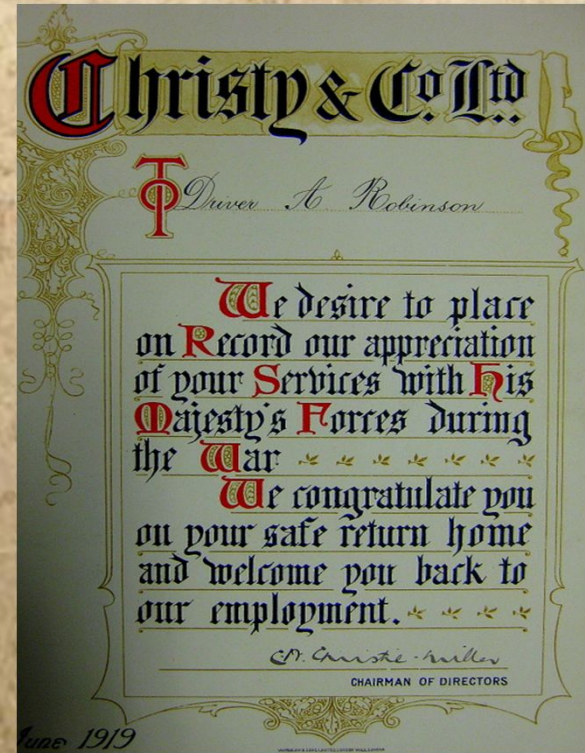 Christy & Co. Ltd.
To Driver A Robinson
We desire to place
on Record our appreciation
of your Services with His
Majesty's Forces during
the War
We congratulate you
on your safe return home
and welcome you back to
our employment.
C.M. Christie-Miller
CHAIRMAN OF DIRECTORS
June 1919